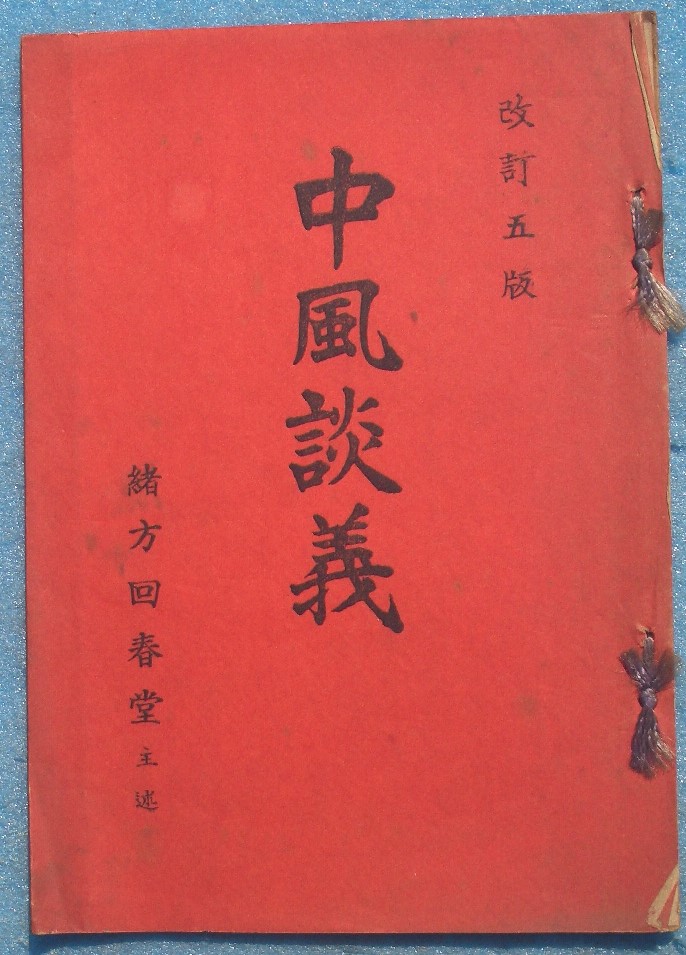 改訂五版
中風談義
緒方回春堂主述